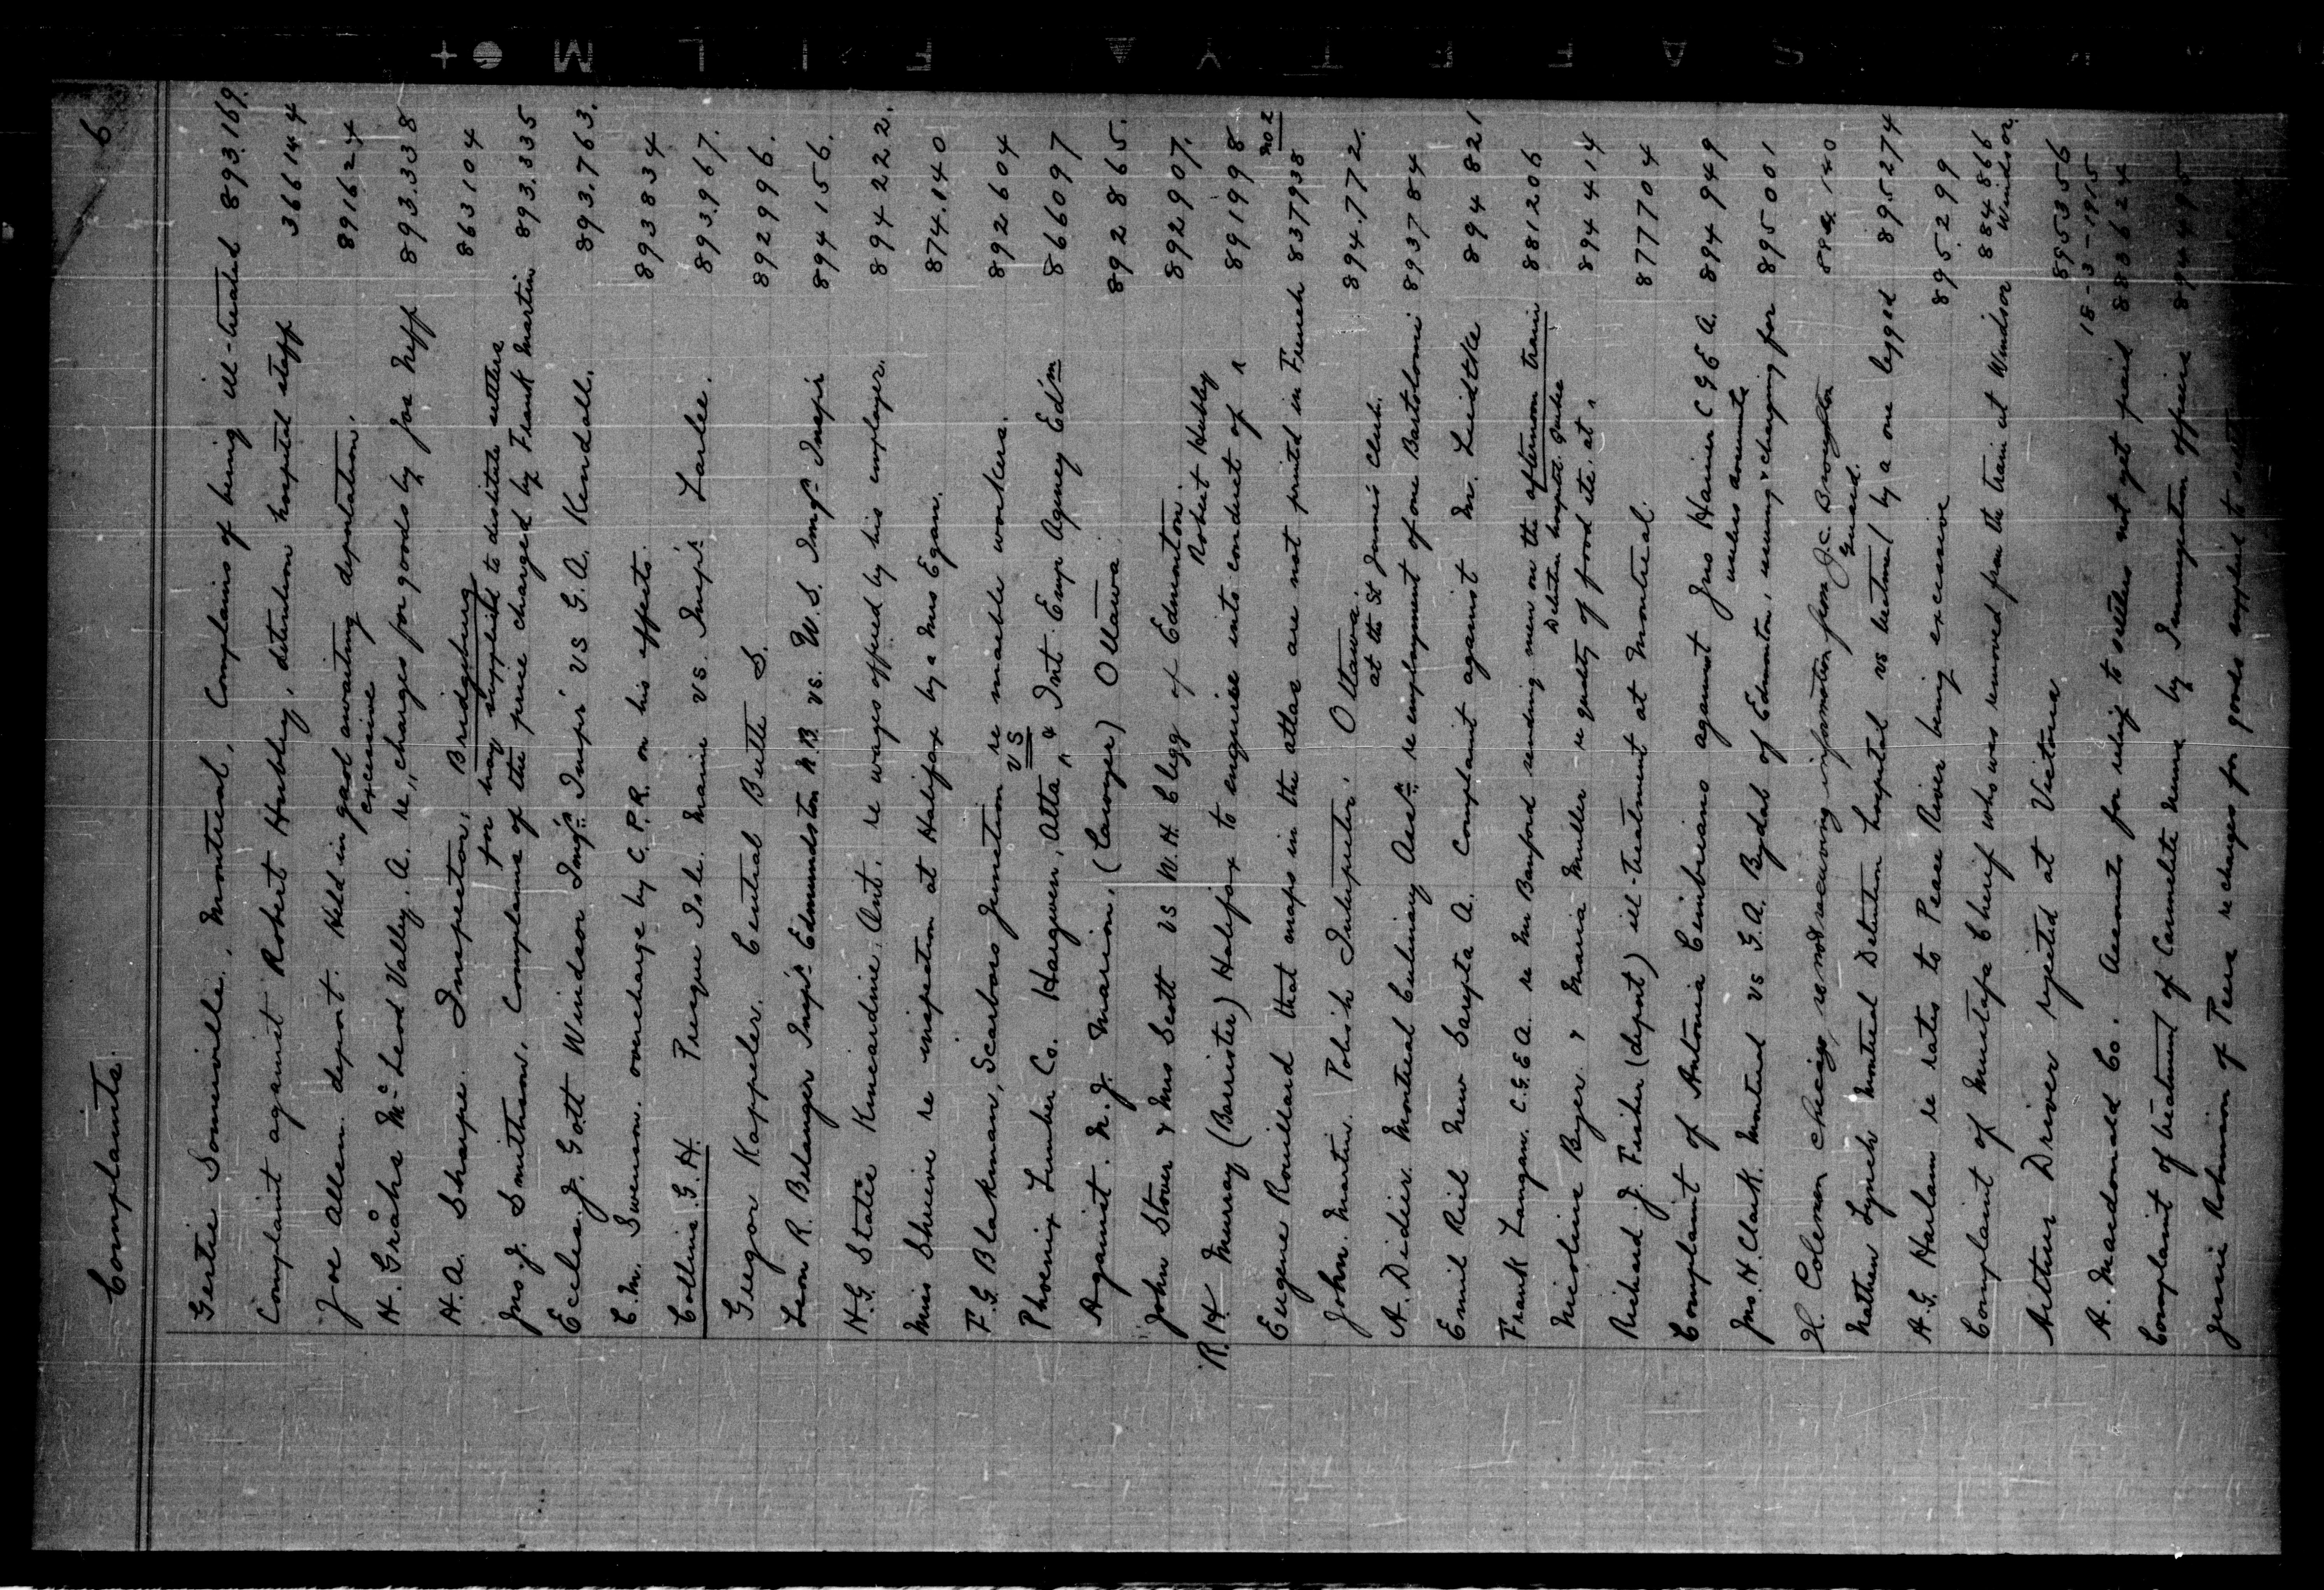 Complaints. 6
Gertie Somerville, Montreal, Complains of being ill-treated 893.169.
Complaint against Robert Hubley, detention hospital staff 366144
Joe Allen deport. Held in gaol awaiting deportation. 891624
excessive
H. Grahs McLeod Valley, A. re, charges for goods by Joe Neff 893.338
H.A. Sharpe. Inspector, Bridgeburg 863104
for hay supplied to destitute settlers
Jno. J. Smithson. Complains of the price charged by Frank Martin 893.335
Eccles. J. Gott Windsor Imgn Inspr vs G.A. Kendall. 893.763.
C.M. Swenson. overcharge by C.P.R. on his effects 893834
Collins. G.H. Presque Isle. Maine vs. Inspr Larlee. 893.967.
Gregor Kappeler. Central Butte S. 892996.
Leon R. Belanger Inspr Edmundston N.B. vs. W.S. Imgn Inspr 894156.
H.G. Statie Kincardine, Ont. re wages offered by his employer. 894222.
Miss Shrieve re inspection at Halifax by a Mrs Egan. 874.140
F.G. Blakman, Scarboro Junction re marble workers. 892604
vs
Phoenix Lumber Co. Hargwen, Alta & Int. Emp Agency Edm 866097
Against. M.J. Marion, (Lawyer) Ottawa 892865.
John Stover & Mrs Scott vs W.H. Clegg of Edmonton. 892907.
Robert Hubley
R.H. Murray (Barrister) Halifax to enquire into conduct of ^ 891998
Eugene Rouillard that maps in the atlas are not printed in French 837938 no 2
John Martin. Polish Interpreter. Ottawa. 894.772.
at the St James Club.
A. Didier. Montreal Culinary Assn re employment of one Bartolomi 893784
Emil Riel New Sarepta A. Complaint against Mr. Leidtke 894821
Frank Langan. C.G.E.A. re Mr Banford sending men on the afternoon train 881206
Detention hospital Quebec
Nicoline Byer & Maria Muller re quality of food etc. at ^ 894414
Richard J. Fisher (deport) ill-treatment at Montreal. 877704
Complaint of Antonia Cimbriano against Jno Hanier C.G.E.A. 894949
unless accounts
Jno. H. Clark. Montreal vs G.A. Bydal of Edmonton, & charging for 895001
H. Coleman Chicago re not receiving information from J.C. Broughton 140
Guard.
Nathan Lynch Montreal Detention hospital vs treatment by a one legged 895274
A.G. Harlam re rates to Peace River being excessive 895299
Complaint of Mustafa Cherif who was removed from the train at Windsor 884866
Windsor.
Arthur Driver rejected at Victoria 895356
18-3-1915
A. Macdonald Co. Accounts for relief to settlers not yet paid 883624
Complaint of treatment of Carmelite Nuns by Immigration officers 894495
Jessie Robinson of re charges for goods supplied to